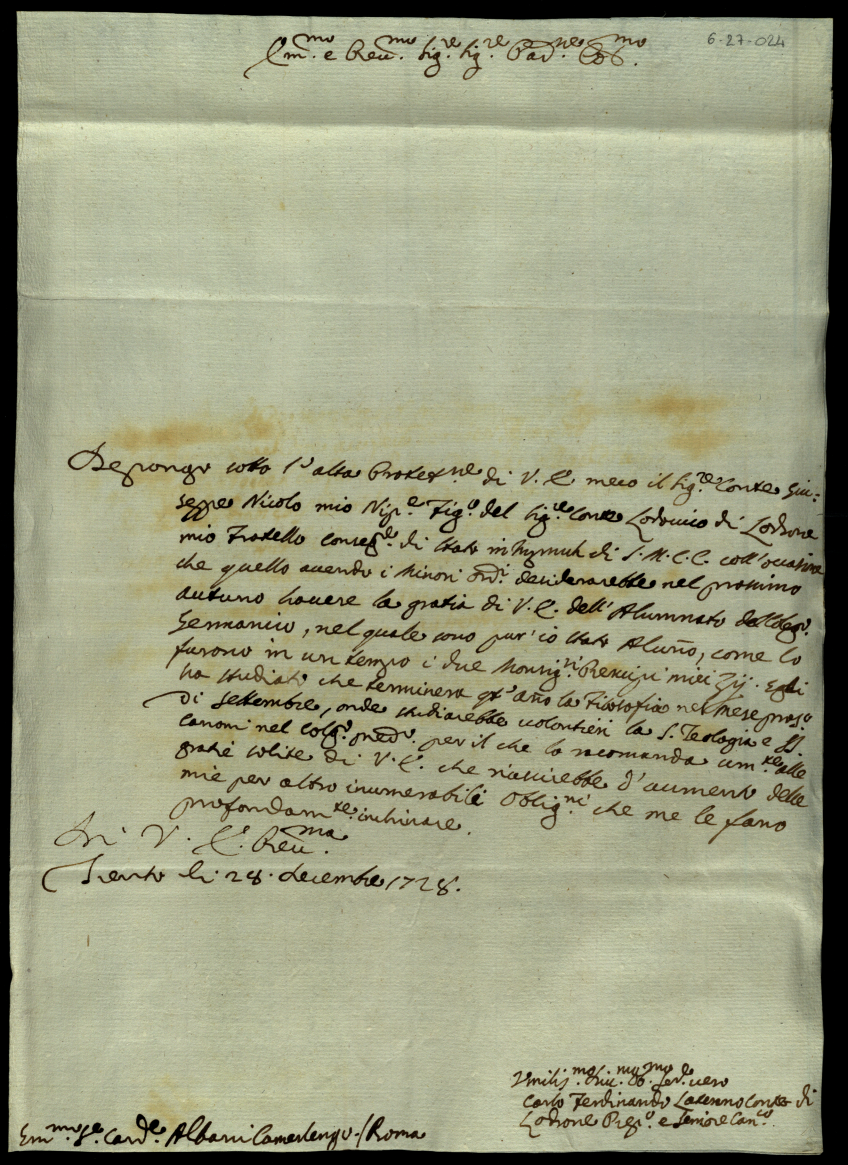 6-27-024
Em.mo e Reu.mo Sig.re Sig.re Pad.ne Col.mo
Depongo sotto l'alta Protet.ne di V. E. meco il Sig.re Conte Giu:
seppe Nicolo mio Nip.e Fig.o del Sig.re Conte Lodouico di Lodrone
mio Fratello di Stato in di S. M. C. C. coll'occasione
che quello auendo i Minori Ord.i desiderarebbe nel prossimo
autuno hauere la gratia di V. E. dell'Alumnato
Germanico, nel quale sono pur'io stato Aluño, come lo
furono in un tempo i due Monsig.ri miei Zij. Egli
ha studiato che terminera qt.o año la Filosofia nel mese
di Settembre, onde studiarebbe uolontieri la S. Teologia e SS.
canoni nel Colg.o pred.o per il che lo racomando um.te alle
gratie solite di V. E. che riuscirebbe d'aumento delle
mie per altro inumerabili Oblig.ni che me le fano
profondam.te inchinare.
Di V. E. Reu.ma
Trento li 28. decembre 1728.
Vmilis.mo Ser.e uero
Carlo Ferdinando Conte di
Lodrone e Seniore Can.co
Em.mo S.e Card.e Albani Camerlengo / Roma